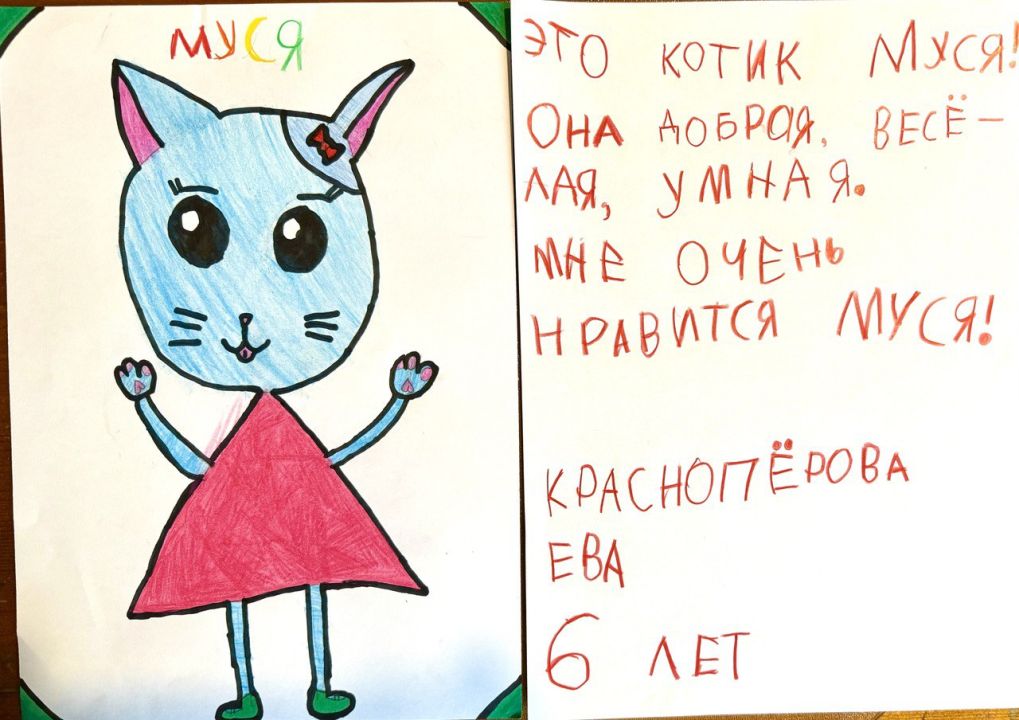 МУСЯ
ЭТО КОТИК МУСЯ!
ОНА ДОБРАЯ, ВЕСЁ-
ЛАЯ, УМНАЯ.
МНЕ ОЧЕНЬ
НРАВИТСЯ МУСЯ!
КРАСНОПЁРОВА
ЕВА
6 ЛЕТ